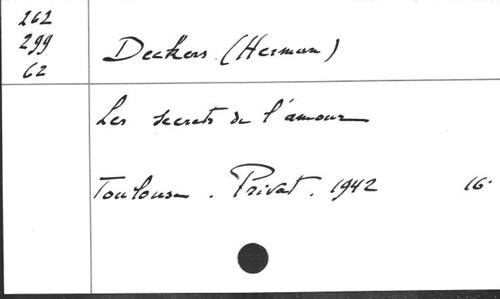 262
299
62
Deckers (Herman)
Les secrets de l'amour
Toulouse. Privat. 1942 16°